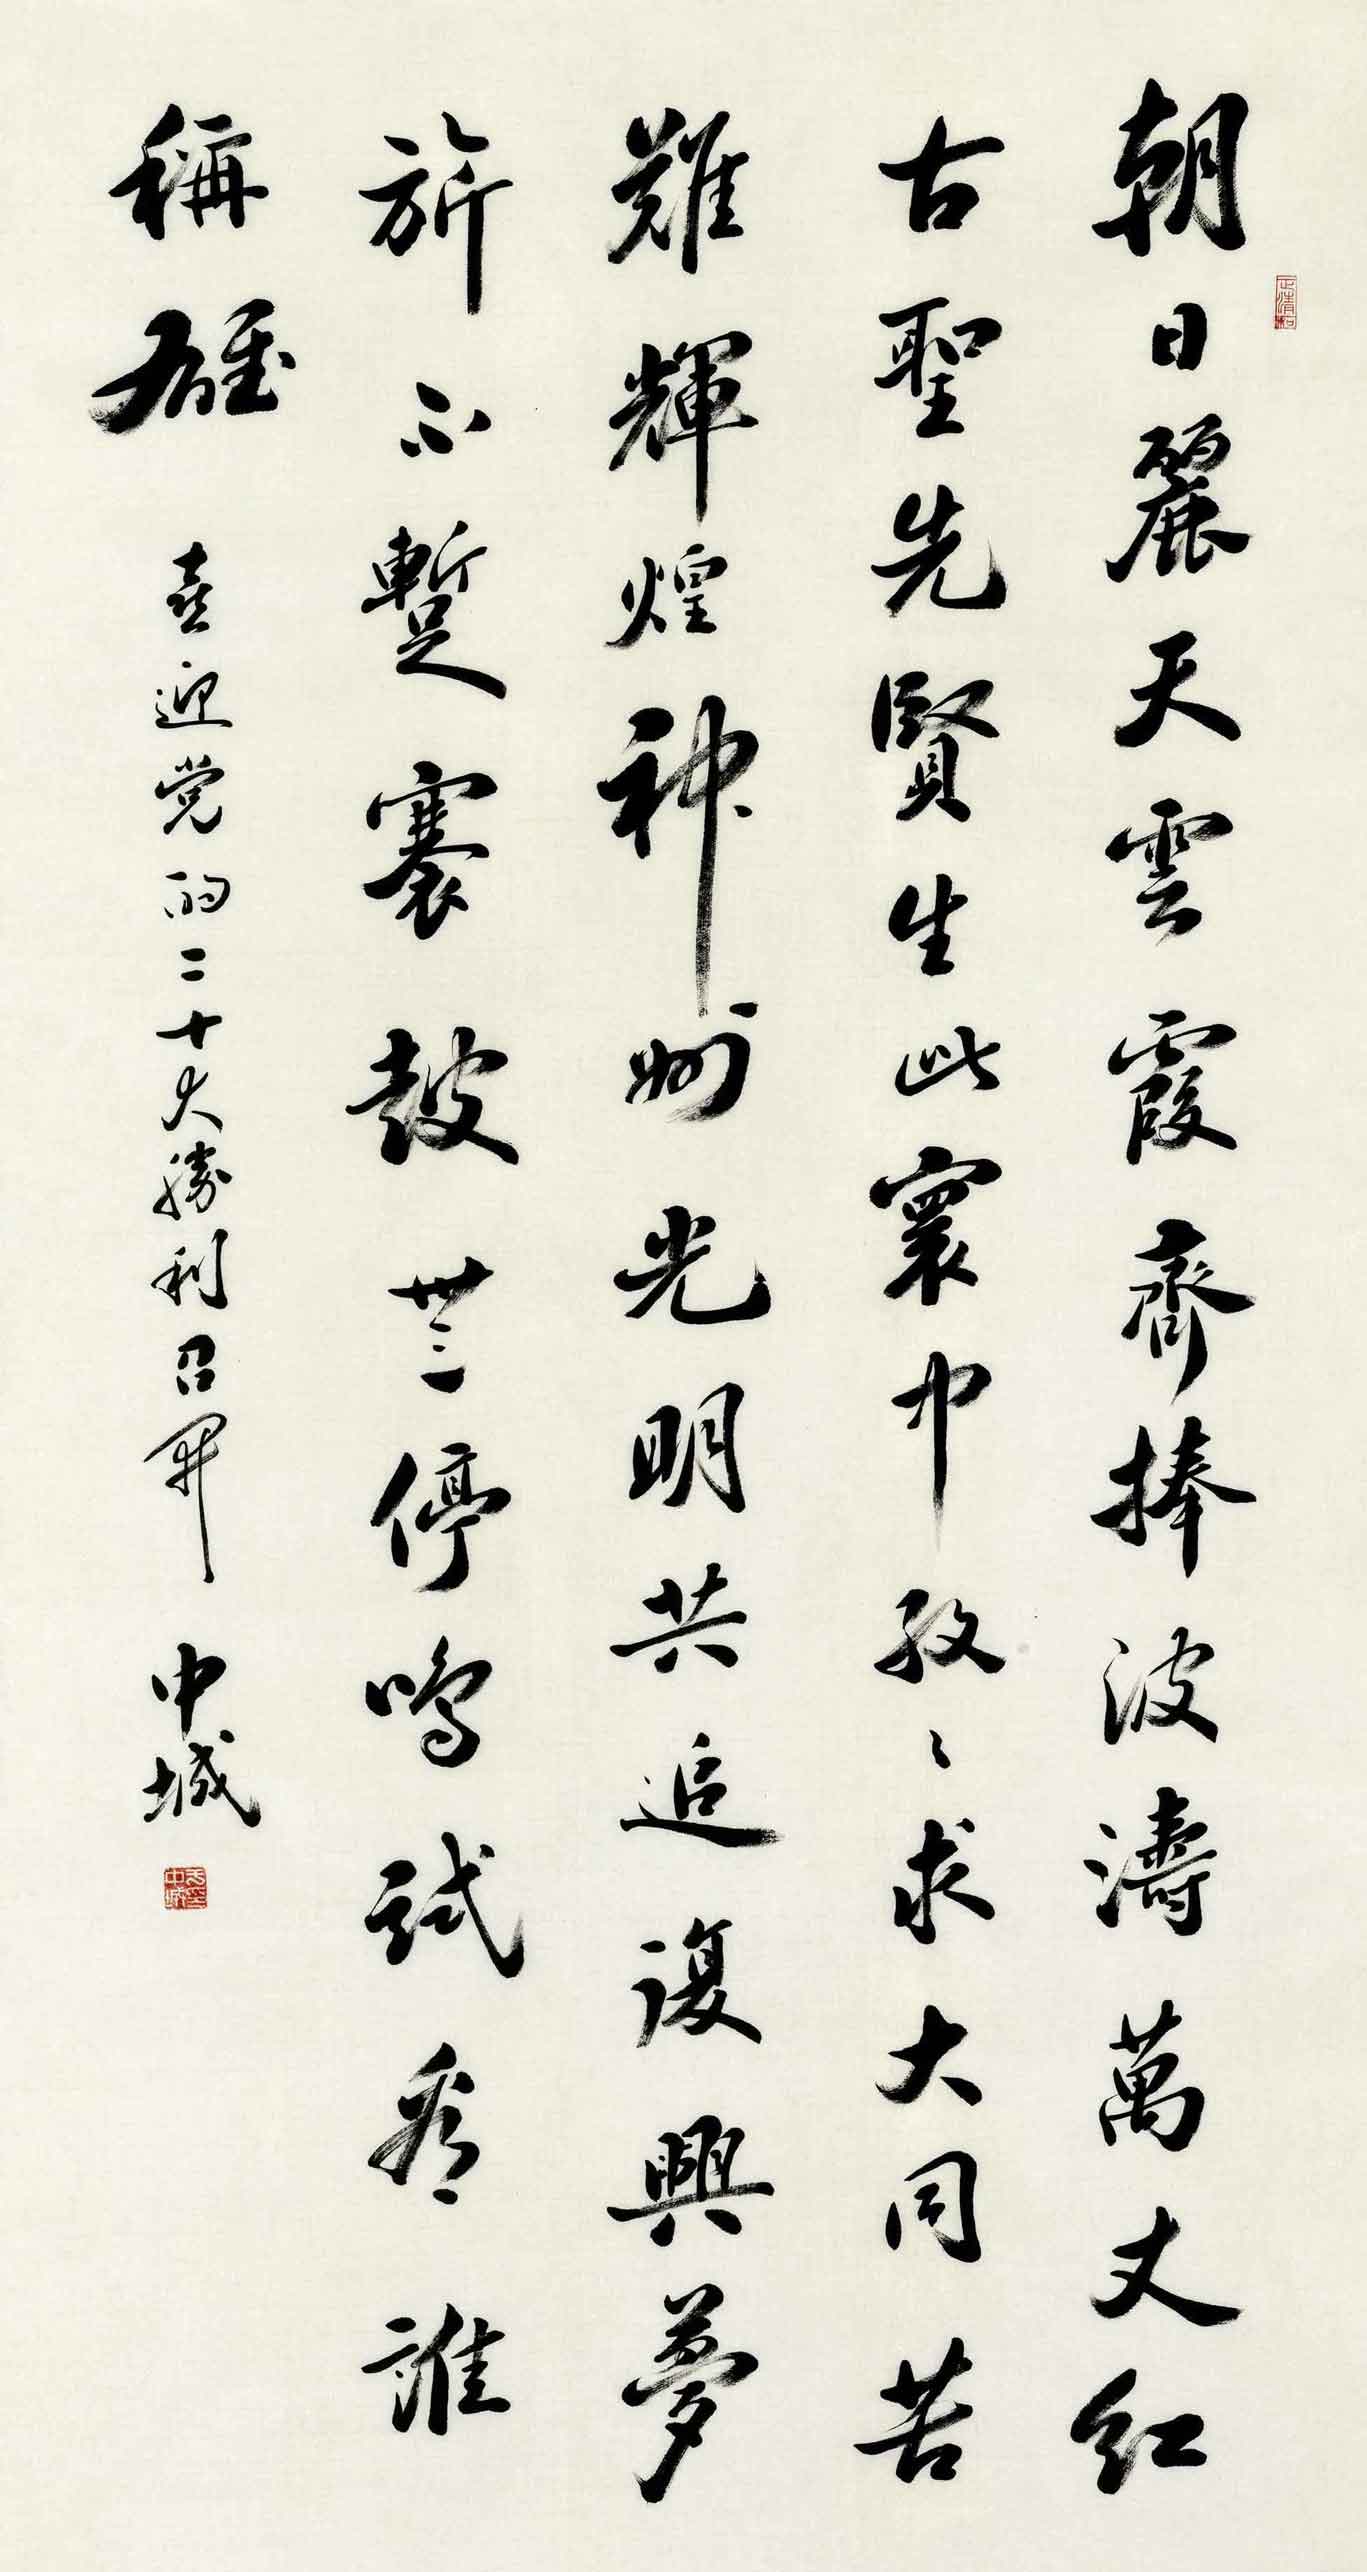 正清和
朝日麗天雲霞齊捧波濤萬丈紅
古聖先賢生此寰中孜〻求大同苦
難輝煌神州光明共追復興夢
旂不蹔褰皷無停鳴試看誰
稱雄 喜迎党的二十大勝利召開 中城